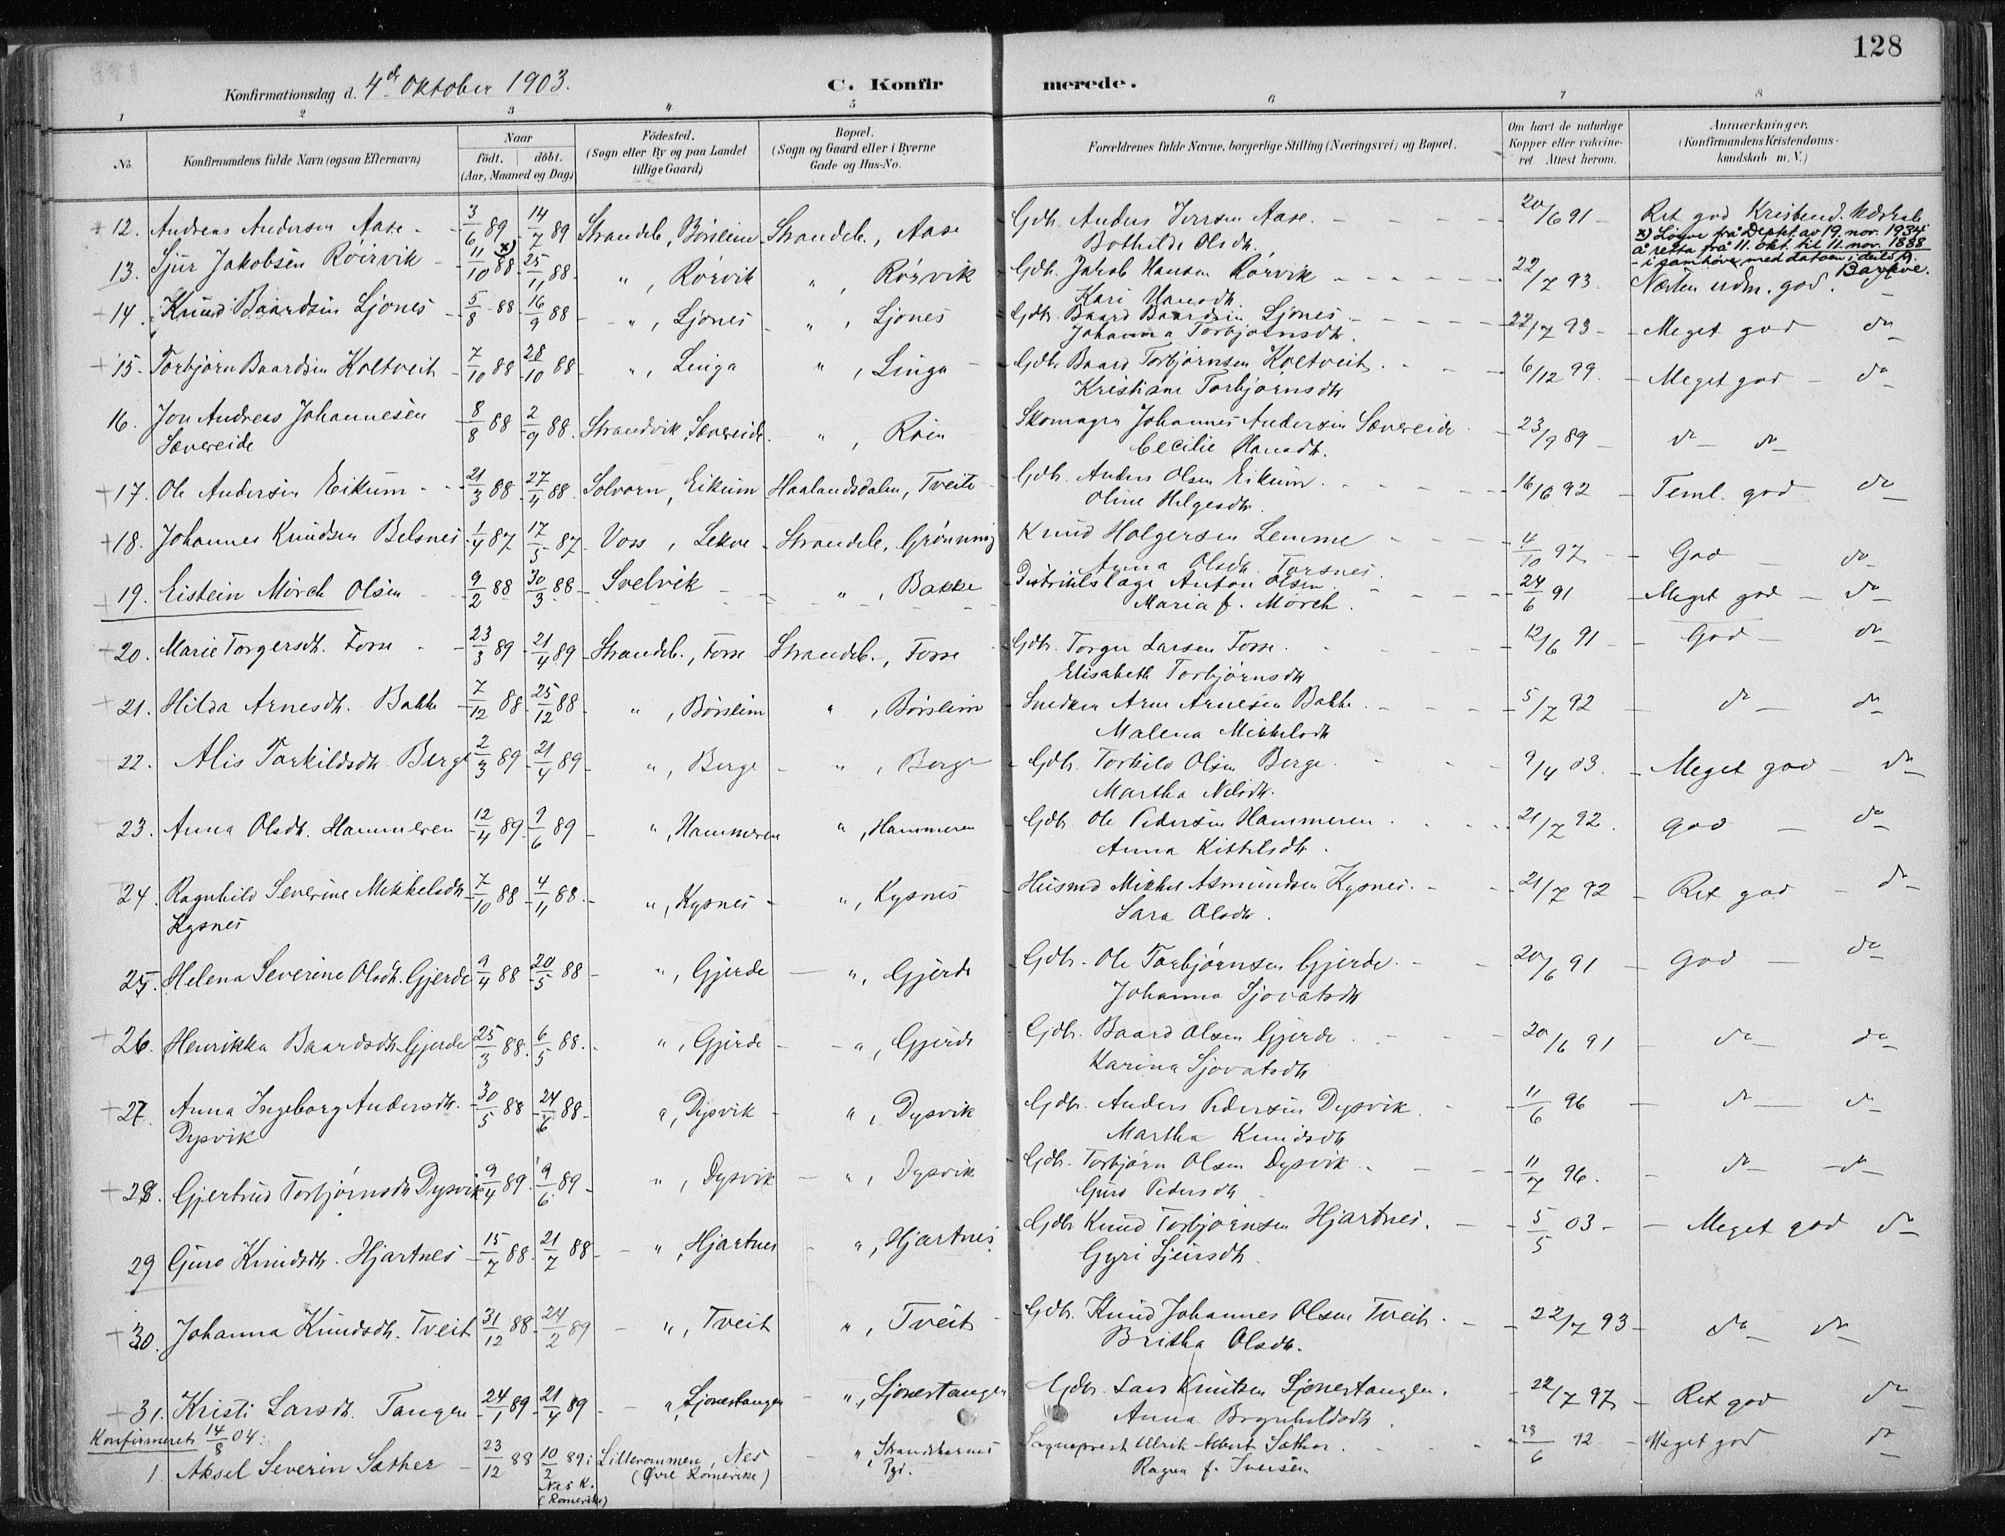 128
Konfirmationsdag d. 4de Oktober 1903.
C. Konfirmerede.
1 2 3 4 5 6 7 8
No. Konfirmandens fulde Navn (ogsaa Efternavn) Naar født, døbt. (Aar, Maaned og Dag) Fødested. (Sogn eller By og paa Landet tillige Gaard) Bopæl. (Sogn og Gaard eller i Byerne Gade og Hus-No. Forældrenes fulde Navne, borgerlige Stilling (Næringsvei) og Bopæl. Om havt de naturlige Kopper eller vakcineret. Attest herom. Anmærkninger. (Konfirmandens Kristendomskundskab m. V.)
12. Andreas Andersen Aase 3/6 89 14/7 89 Strandeb., Børsheim Strandeb., Aase Gdb. Anders Iversen Aase. 20/6 91 Ret god Kristend. Kdskab
Bothilde Olsdtr.
x) Løyve frå Depkt. av 19. nov. 1934
å retta frå 11. okt. til 11. nov. 1888
- i samhøve med datoen i
13. Sjur Jakobsen Røirvik 11/10 88 x) 25/11 88 ", Rørvik ", Rørvik Gdb. Jakob Hansen Rørvik 22/7 93. Næsten udm. god. do
Kari Hansdtr.
14. Knud Baardsen Ljones 5/8 88 16/9 88 ", Ljones ", Ljones Gdb. Baard Baardsen Ljones 22/7 93 Meget god do
Johanna Torbjørnsdtr.
15. Torbjørn Baardsen Koltveit 7/10 88 28/10 88 ", Linga ", Linga Gdb. Baard Torbjørnsen Koltveit 6/12 99. Meget god do
Kristiane Torbjørnsdtr
16. Jon Andreas Johannesen Sævereide 8/8 88 2/9 88. Strandvik, Sævereide. ", Røen Skomager Johannes Andersen Sævereide 23/9 89 do do
Cecilie Hansdtr.
17. Ole Andersen Eikum 21/3 88 27/4 88. Solvorn, Eikum Haalandsdalen, Tveite Gdb. Anders Olsen Eikum 16/6 92 Teml. god do
Oline Helgesdtr.
18. Johannes Knudsen Belsnes 1/4 87 17/5 87 Voss, Lekve Strandeb., Grønning Knud Holgersen Lemme 4/10 97 God do
Anna Olsdtr. Torsnes.
19. Eistein Mørch Olsen 9/2 88 30/3 88 Svelvik ", Bakke Distriktslæge Anton Olsen 24/6 91 Meget god do
Maria f. Mørch.
20. Marie Torgersdtr. Fosse 23/3 89 21/4 89 Strandeb., Fosse Strandeb., Fosse Gdb. Torger Larsen Fosse. 12/6 91 God do
Elisabeth Torbjørnsdtr
21. Hilda Arnesdtr. Bakke 7/12 88 25/12 88 ", Børsheim ", Børsheim Snedker Arne Arnesen Bakke. 5/7 92 do do
Malena Mikkelsdtr
22. Alis Torkildsdtr. Berge 2/3 89 21/4 89 ", Berge ", Berge Gdb. Torkild Olsen Berge. 9/4 03. Meget god do
Martha Nilsdtr.
23. Anna Olsdtr. Hammeren 12/4 89 9/6 89 ", Hammeren ", Hammeren Gdb. Ole Pedersen Hammeren 21/7 92. God do
Anna Kittelsdtr.
24. Ragnhild Severine Mikkelsdtr Kysnes 7/10 88 4/11 88. ", Kysnes ", Kysnes Husmd Mikkel Asmundsen Kysnes. 21/7 92 Ret god do
Sara Olsdtr.
25. Helena Severine Olsdtr. Gjerde 9/4 88 20/5 88 ", Gjerde ", Gjerde Gdb. Ole Torbjørnsen Gjerde. 20/6 91 God do
Johanna Sjovatsdtr
26. Henrikka Baardsdtr. Gjerde 25/3 88. 6/5 88. ", Gjerde ", Gjerde Gdb. Baard Olsen Gjerde 20/6 91 do do
Karina Sjovatsdtr
27. Anna Ingeborg Andersdtr. Dysvik 30/5 88 24/6 88 ", Dysvik ", Dysvik Gdb. Anders Pedersen Dysvik 11/6 96 do do
Martha Knudsdtr
28. Gjertrud Torbjørnsdtr Dysvik 9/4 89 9/6 89 ", Dysvik ", Dysvik Gdb. Torbjørn Olsen Dysvik 11/7 96. do do
Guro Pedersdtr
29 Guro Knudsdtr. Hjartnes 15/7 88. 21/7 88 ", Hjartnes ", Hjartnes Gdb. Knud Torbjørnsen Hjartnes. 5/5 03 Meget god do
Gyri Sjursdtr.
30. Johanna Knudsdtr. Tveit 31/12 88 24/2 89 ", Tveit ", Tveit Gdb. Knud Johannes Olsen Tveit. 22/7 93 do do
Britha Olsdtr.
31. Kristi Larsdtr. Tangen 24/1 89 21/4 89 ", Ljonestangen ", Ljonestangen Gdbr. Lars Knutsen Ljonestangen. 22/7 97 Ret god do
Anna Brynhildsdtr.
Konfirmeret 14/8 04:
1. Aksel Severin Sæther 23/12 88 10/2 89 i Nes K. (Romerike) Lillerommen, Nes (Øvre Romerike) ", Strandebarms Pgd. Sogneprest Ulrik Albert Sæther. 28/6 92 Meget god do
Ragna f. Iversen